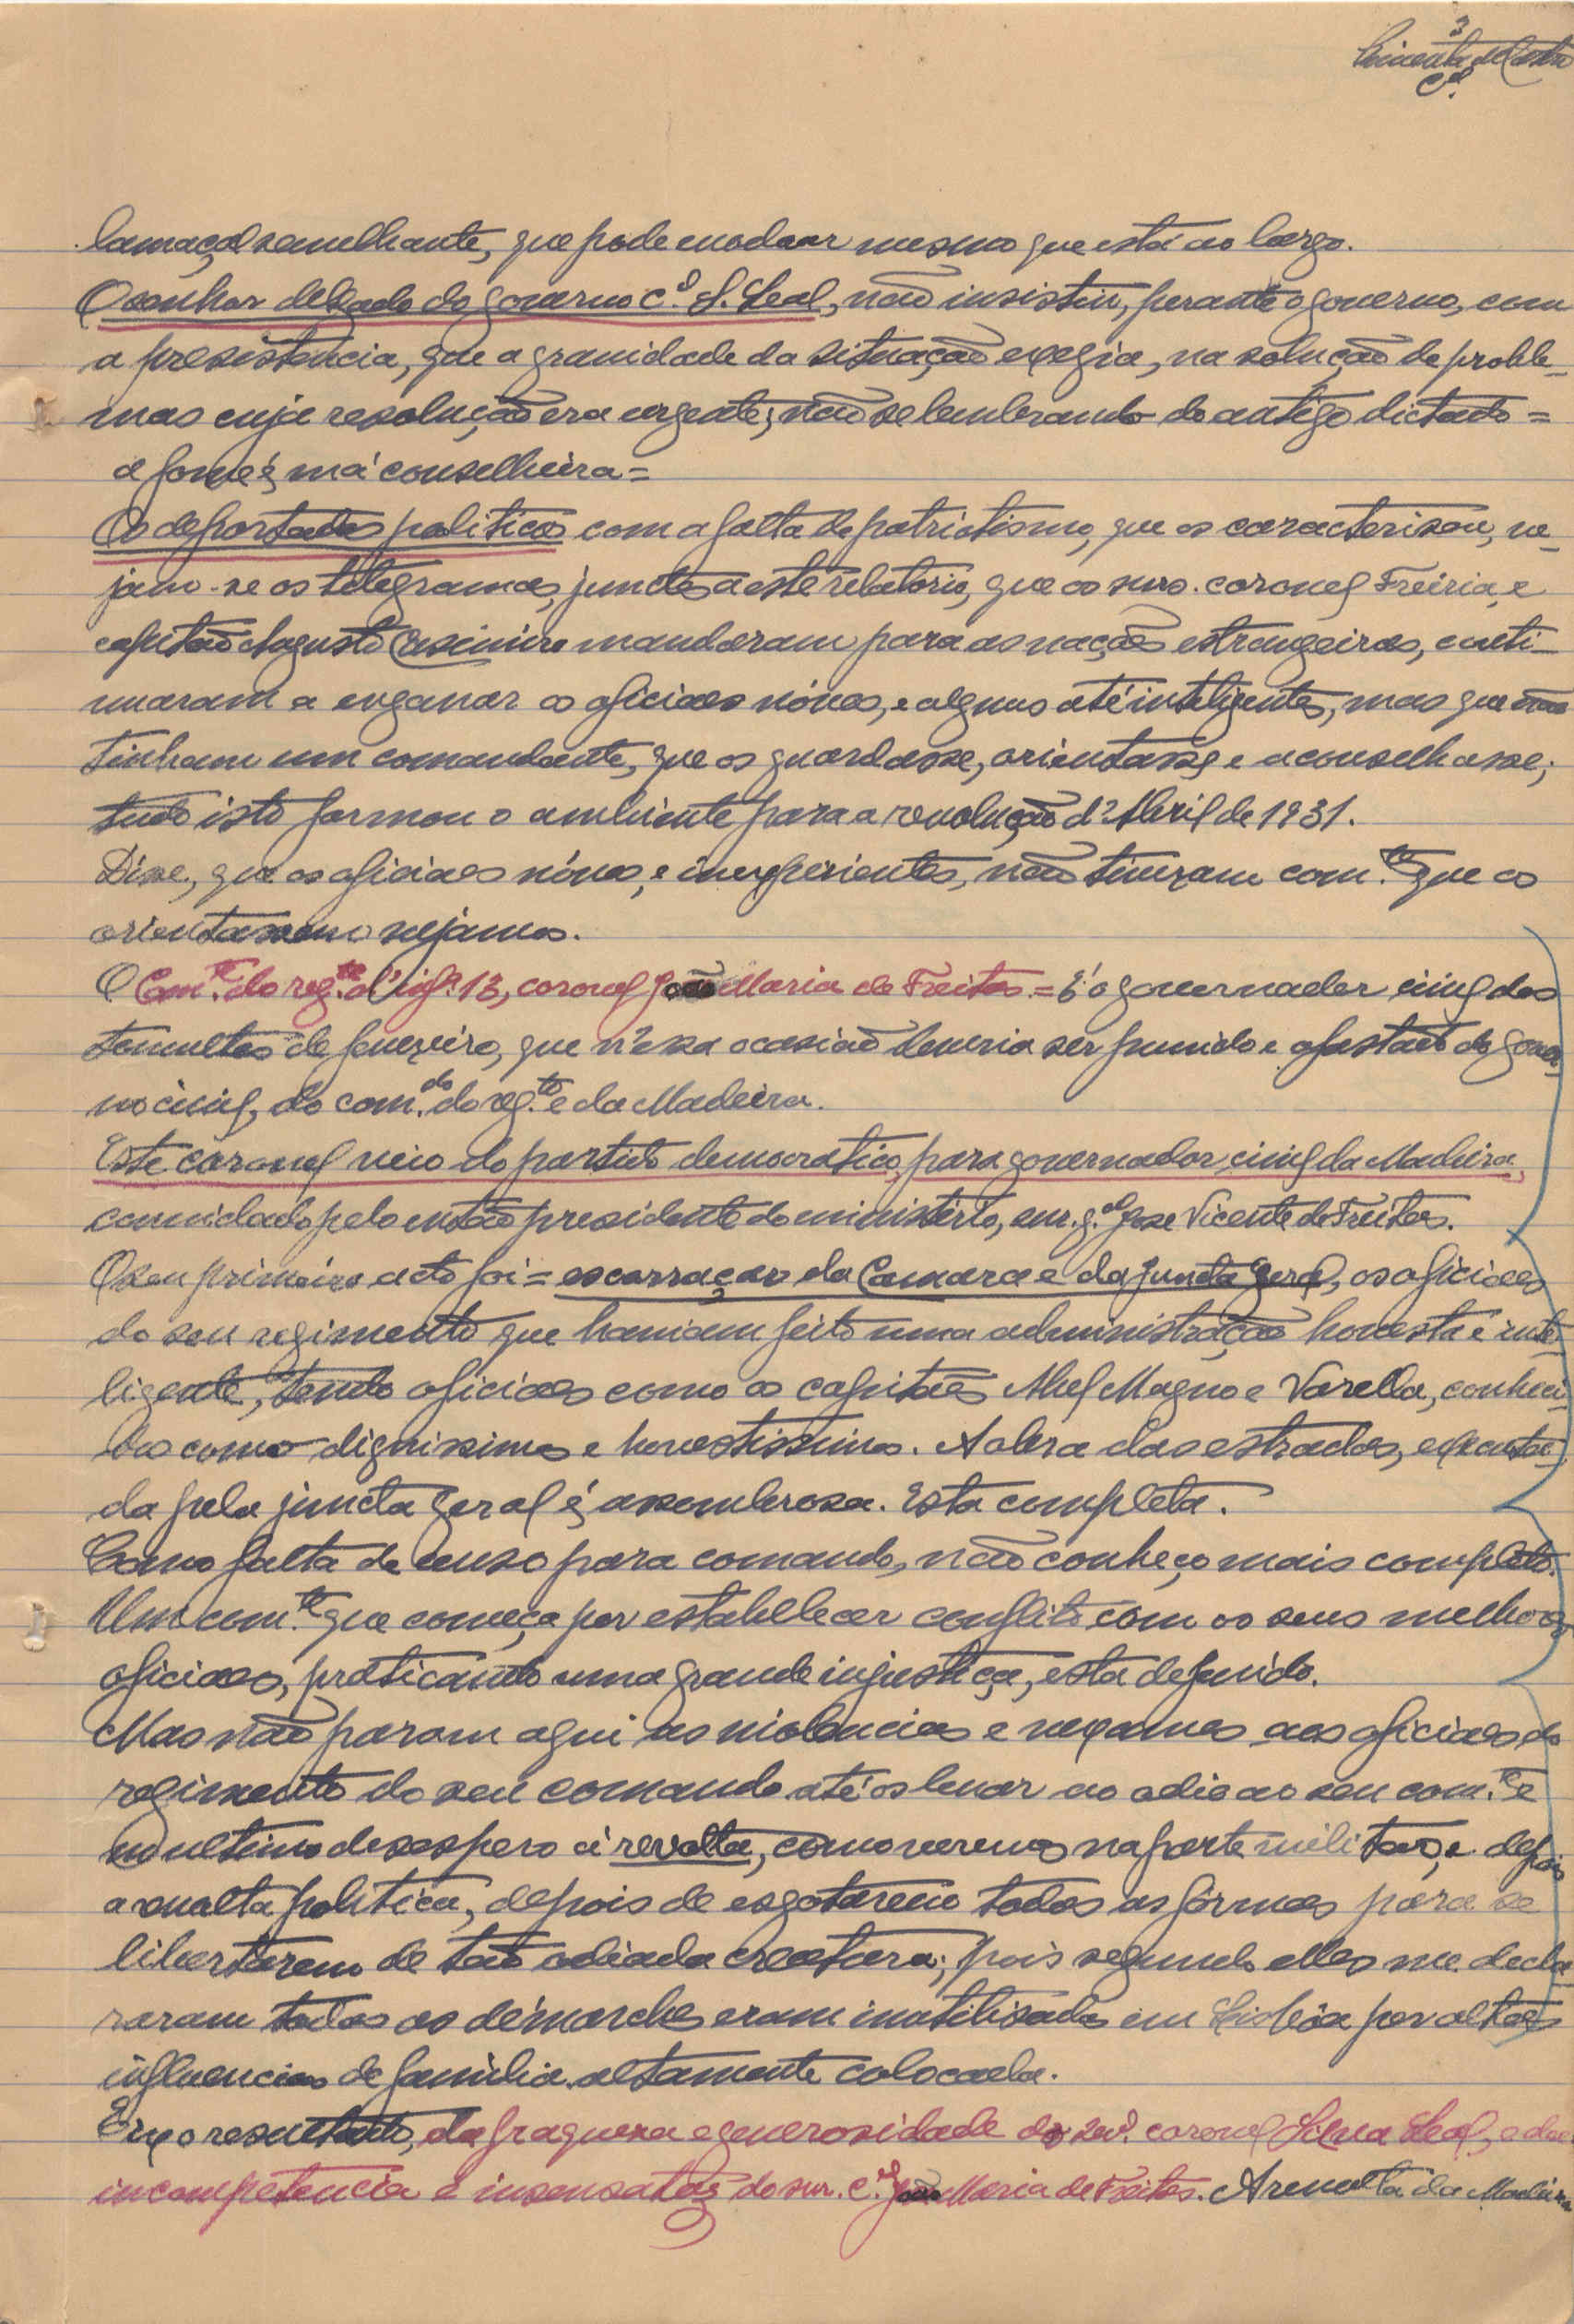 3
Pimenta de Castro
C.el
lamaçal semelhante, que pode enodoar mesmo que está ao largo.
O senhor delegado do governo c.el S. Leal, não insistiu, perante o governo, com
a presistencia, que a gravidade da situação exegia, na solução de proble-
mas cuja resolução era urgente; não se lembrando do antigo dictado =
a fome é má conselheira =
Os deportados politicos com a falta de patriotismo, que os caracterisou, ve-
jam-se os telegramas, junctos a este relatorio, que os snrs. coronel Freiria, e
capitão Augusto Casimiro mandaram para as nações estrangeiras, conti-
nuaram a enganar os oficiaes nóvos, e alguns até inteligentes, mas que não
tinham um comandante, que os guardasse, orientasse e aconselhasse;
tudo isto formou o ambiente para a revolução d'Abril de 1931.
Disse, que os oficiaes nóvos, e inexperientes, não tiveram com.te que os
orientassem vejamos.
O Com.te do reg.to d'inf.ª 13, coronel João Maria de Freitas = É o governador civil dos
tumultos de fevereiro, que n'essa ocasião deveria ser punido e afastado do gover-
no civil, do com.do do reg.to e da Madeira.
Este coronel veio do partido democratico, para governador civil da Madeira,
convidado pelo então presidente do ministério, snr. g.al Jose Vicente de Freitas.
O seu primeiro acto foi = escorraçar da Camara e da junta geral, os oficiaes
do seu regimento que haviam feito uma administração honesta e inte-
ligente, tendo oficiaes como os capitães Abel Magno e Varella, conheci-
dos como dignissimos e honestissimos. A obra das estradas, executa-
da pela juncta geral é assombrosa. Esta completa.
Como falta de senso para comando, não conheço mais completo.
Um com.te que começa por estabelecer conflito com os seus melhores
oficiaes, praticando uma grande injustiça, esta definido.
Mas não param aqui as violencias e vexames aos oficiaes do
regimento do seu comando até os levar ao odio ao seu com.te e
no ultimo desespero á revolta, como veremos na parte militar, e depois
a revolta politica, depois de esgotarem todas as fórmas para se
libertarem de tão odiada creatura; pois segundo elles me decla-
raram todas as démarches eram inutilisadas em Lisbôa por altas
influencias de familia altamente colocada.
Eis o resultado, da fraqueza e generosidade do snr. coronel Silva Leal, e da
incompetencia e insensatez do snr. c.el João Maria de Freitas. A revolta da Madeira